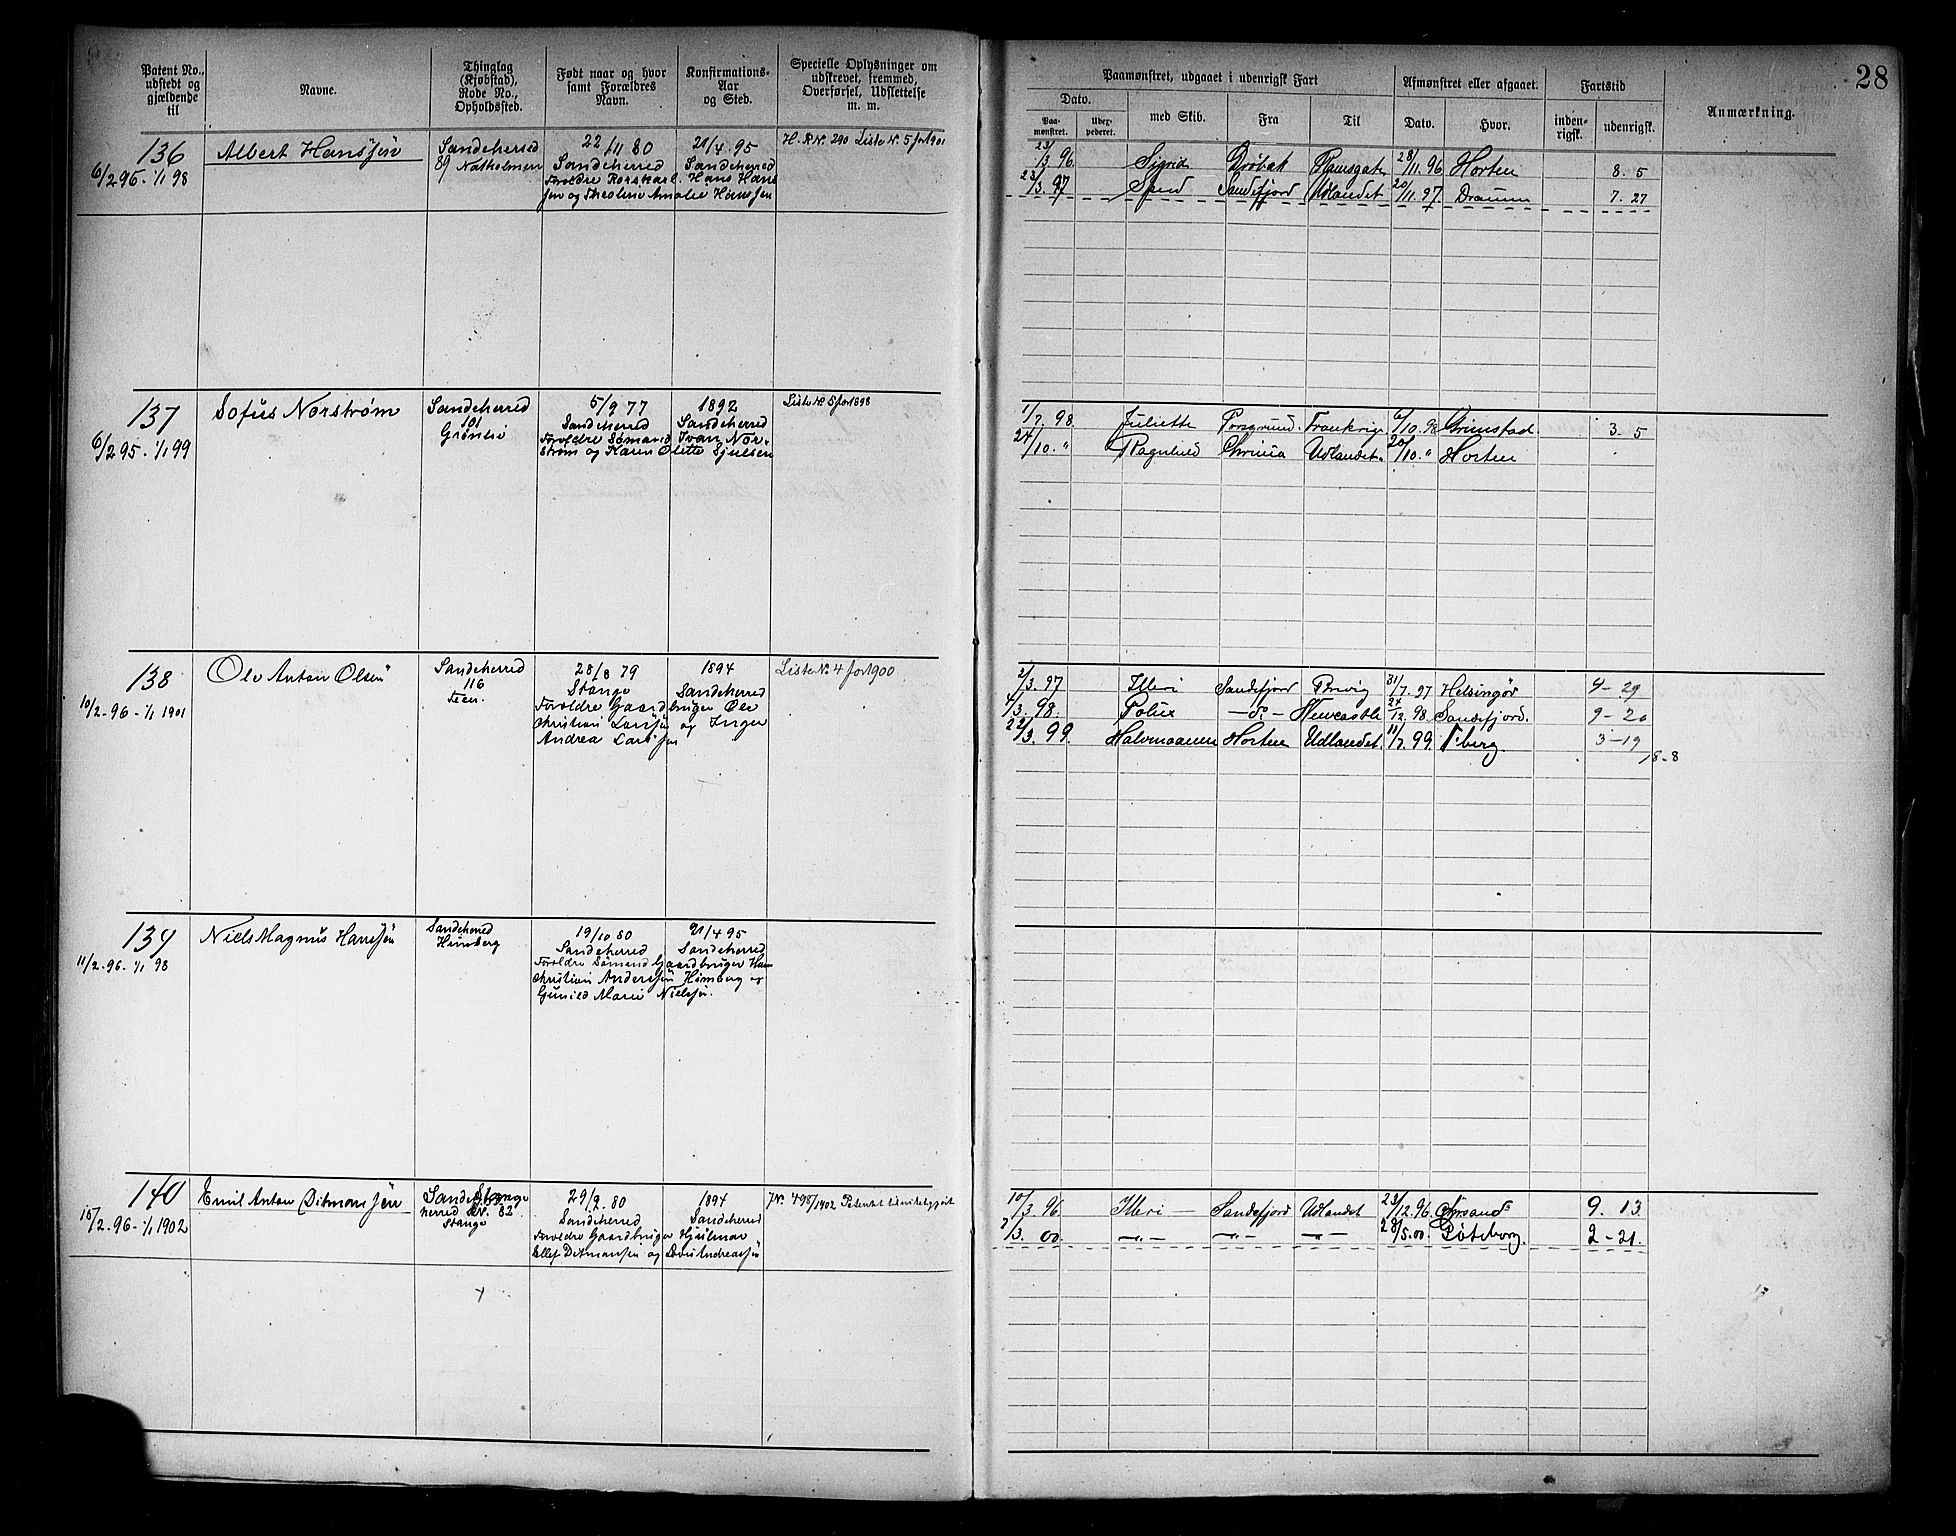 28
Patent No., udstedt og gjældende til
Navne.
Thinglag (Kjøbstad), Rode No., Opholdssted.
Født naar og hvor samt Forældres Navn.
Konfirmations-Aar og Sted.
Specielle Oplysninger om udskrevet, fremmed, Overførsel, Udslettelse m. m.
Paamønstret, udgaaet i udenrigsk Fart
Dato.
Paa-mønstret.
Udex-pederet.
med Skib.
Fra
Til
Afmønstret eller afgaaet.
Dato.
Hvor.
Fartstid
inden-rigsk.
udenrigsk.
Anmærkning.
136
6/2 95 - 1/1 98
Albert Hanssen
Sandeherred
89 Natholmen
22/11 80
Sandeherred
Forældre Rorskarl Hans Hans
sen og Theoline Amalie Hanssen
21/4 95
Sandeherred
H. R. Nr. 290 Liste Nr. 5 for 1901
23/3 96 Sigrid Drøbak Ramsgate 28/11 96 Horten 8. 5
23/3. 97 Spind Sandefjord Udlandet 20/11. 97 Drammen 7. 27
137
6/2 95 - 1/1 99
Sofus Norstrøm
Sandeherred
101
5/9 77
Sandeherred
Forældre Sømand Ivar Nor-
strøm og Karen Olette Sjulsen
1892
Sandeherred
Liste Nr 5 for 1898
1/7. 98. Juliette Porsgrund. Frankrig 6/10. 98 Grimstad. 3. 5
24/10. " Ragnhild Chrinia Udlandet. 20/10. " Horten
138
10/2 - 96 - 1/1 1901
Ole Anton Olsen
Sandeherred
116
28/8 79
Stange
Forældre Gaardbruger Ole
Christian Larssen og Inger
Andrea Larssen
1894
Sandeherred
Liste Nr. 4 for 1900
2/3. 97 Illeri Sandefjord 31/7. 97 Helsingør 4 - 29
4/3. 98. Polux - do - Newcastle 24/12. 98. Sandefjord. 9 - 20
22/3. 99. Halvmaanen Horten Udlandet. 11/7. 99. T.berg. 3 - 19
18 - 8
139
11/2 - 96 - 1/1 98
Niels Magnus Hanssen
Sandeherred
Himberg
19/10 80
Sandeherred
Forældre Sømand Gaardbruger Hans
Christian Anderssen Himberg og
Gunild Marie Nielssen.
21/4 95
Sandeherred
140
15/2 - 96 - 1/1 1902
Emil Anton Ditmanssen
Sandeherred Nr. 82
Stange
Stange
29/2. 80
Sandeherred
Forældre Gaardbruger Hjalmar
Ellef Ditmanssen og Lovise Andreassen
1894
Sandeherred
JNr. 498/1902
10/3. 96 Illeri - Sandefjord Udlandet 23/12. 96. 9. 13
7/3. 00. - " - - " - - " - 28/5. 00. Gøteborg. 2 - 21.